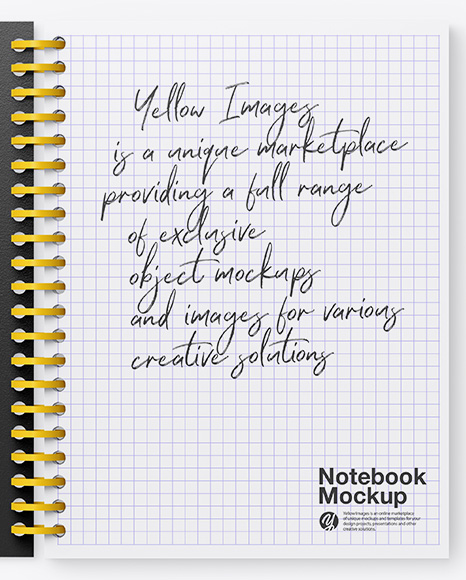 Yellow Images
is a unique marketplace
providing a full range
of exclusive
object mockups
and images for various
creative solutions
Notebook
Mockup
Yellow Images is an online marketplace
of unique mockups and templates for your
design projects, presentations and other
creative solutions.